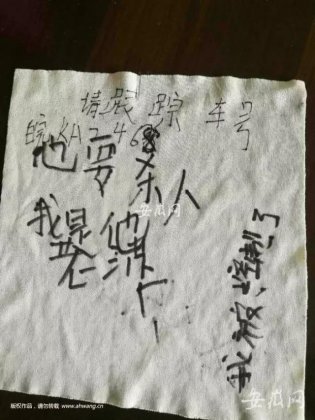 请跟踪车号
皖KA
他要杀人
我是他
我被控制了
安徽网
安徽网
版权作品，请勿转载 www.ahwang.cn